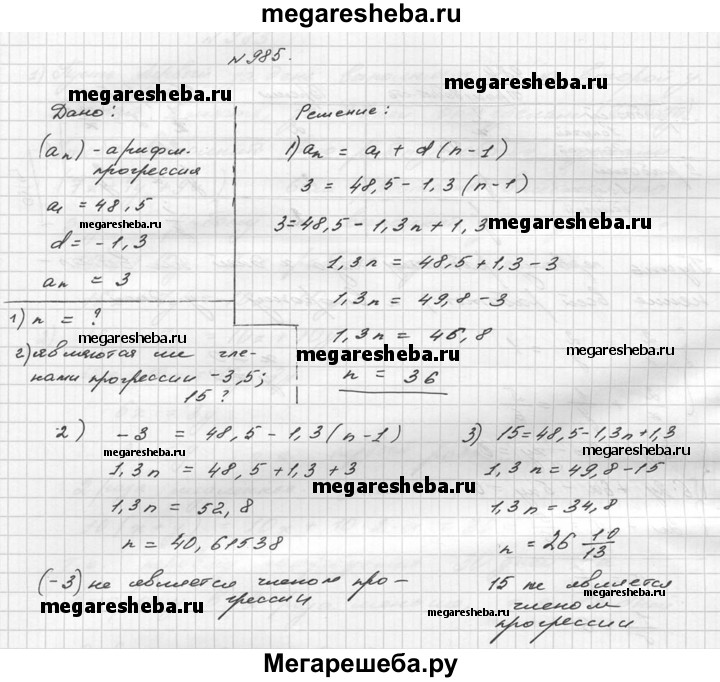 megaresheba.ru
№985.
megaresheba.ru
megaresheba.ru
Дано:
(aₙ) - арифм.
прогрессия
a₁ = 48,5
megaresheba.ru
d = -1,3
aₙ = 3
1) n = ?
megaresheba.ru
2) являются ли чле-
нами прогрессии -3,5;
15 ?
Решение:
1) aₙ = a₁ + d (n-1)
3 = 48,5 - 1,3 (n-1)
3 = 48,5 - 1,3n + 1,3
megaresheba.ru
1,3n = 48,5 + 1,3 - 3
1,3n = 49,8 - 3
1,3n = 46,8
megaresheba.ru
megaresheba.ru
n = 36
2) -3 = 48,5 - 1,3 (n-1)
megaresheba.ru
1,3n = 48,5 + 1,3 + 3
megaresheba.ru
1,3n = 52,8
n = 40,61538
(-3) не является членом про-
грессии
megaresheba.ru
3) 15 = 48,5 - 1,3n + 1,3
megaresheba.ru
1,3n = 49,8 - 15
1,3n = 34,8
n = 26 10/13
megaresheba.ru
15 не является
членом
megaresheba.ru
прогрессии
Мегарешеба.ру